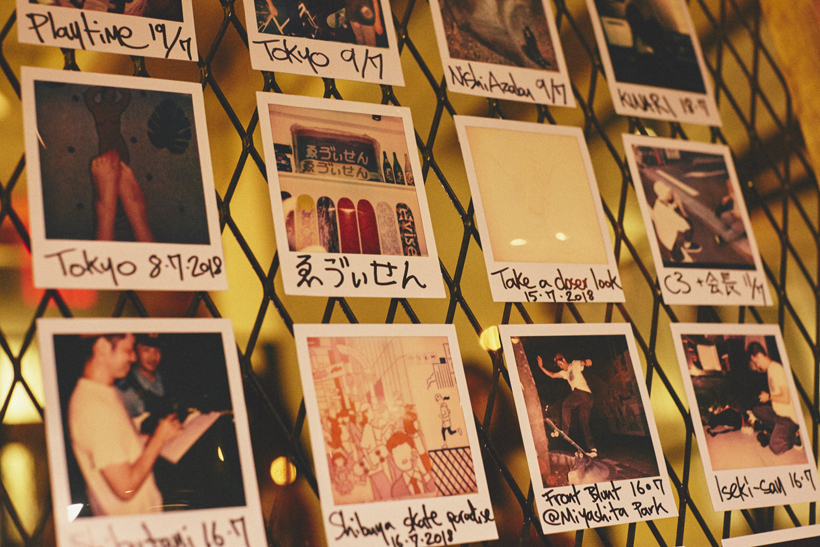 Playtime 19/7
Tokyo 9/7
NishiAzabu 9/7
KINARI 18·7
Tokyo 8·7·2018
ゑゔぃせん
ゑゔぃせん
ゑゔぃせん
Take a closer look
15·7·2018
C3 + 会長 11/7
16·7
Shibuya skate paradise
16·7·2018
Front Blunt 16·07
@Miyashita Park
Iseki-san 16·7